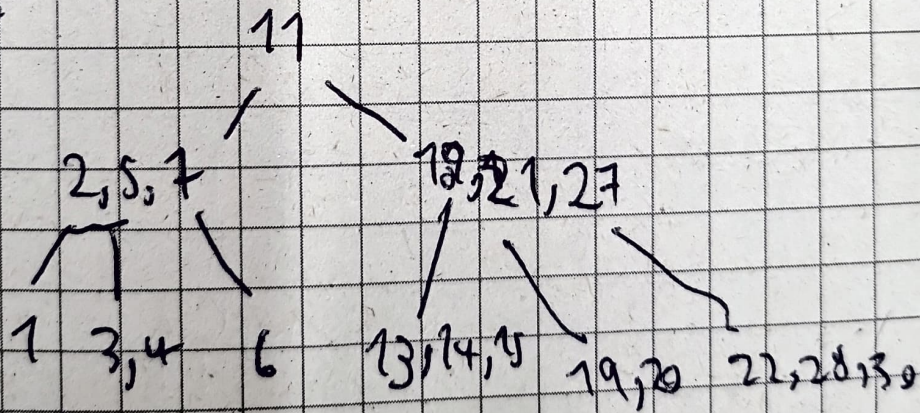 11
2,5,7 21,27
1 3,4 6 13,14,15 19,20 22,28,30